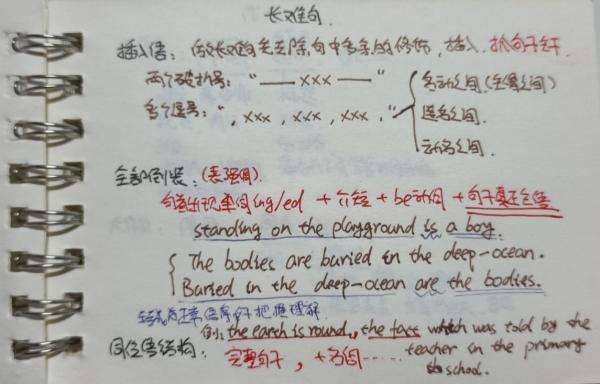 长难句.
插入语: 做长难句先去除句中多余的修饰, 插入. 抓句子主干
两个破折号: "— xxx —"
多个逗号: ", xxx , xxx , xxx , "
名动之间.(主谓之间)
连名之间.
动名之间.
全部倒装: (表强调).
句首出现单词ing/ed + 介短 + be动词 + 句子真正主语
standing on the playground is a boy.
The bodies are buried in the deep-ocean.
Buried in the deep-ocean are the bodies.
转换为正常语序子把握理解.
例: the earth is round, the fact which was told by the
同位语结构: 完整句子, + 名词 …… teacher in the primary
school.